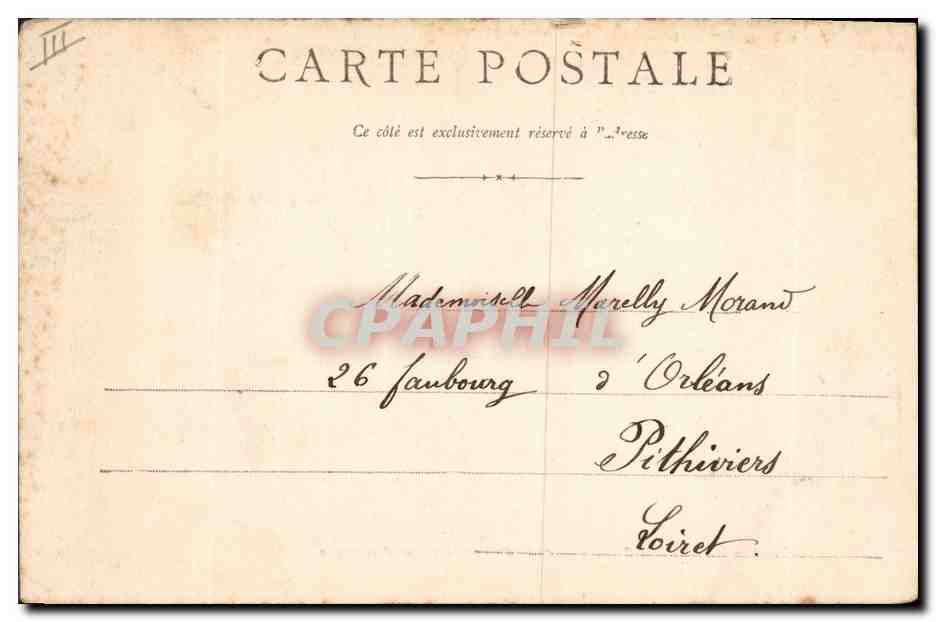 III
CARTE POSTALE
Ce côté est exclusivement réservé à l'adresse
Mademoiselle Marelly Morand
CPAPHIL
26 faubourg d'Orléans
Pithiviers
Loiret.